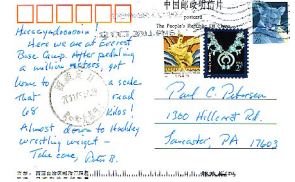 中国邮政明信片
postcard
The People's Republic of China
here we are at Everest
Base Camp. After pedaling
a million meters, got
home to a scale
that read
68 kilos!
Almost down to Hackley
wrestling weight –
Take care, Peter B.
Paul C. Petersen
1300 Hillcrest Rd.
Lancaster, PA 17603